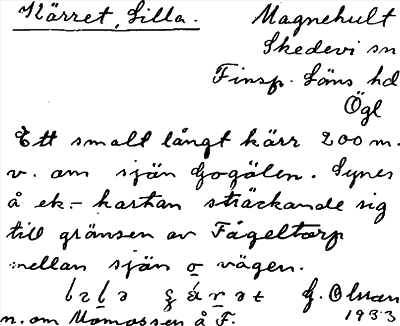 Kärret, Lilla. Magnehult
Skedevi sn
Finsp. Läns hd
Ögl
Ett smalt långt kärr 200 m.
v. om sjön Gogölen. Synes
å ek.- kartan sträckande sig
till gränsen av Fågeltorp
mellan sjön o vägen.
G. Olsson
n. om Momossen å F. 1933